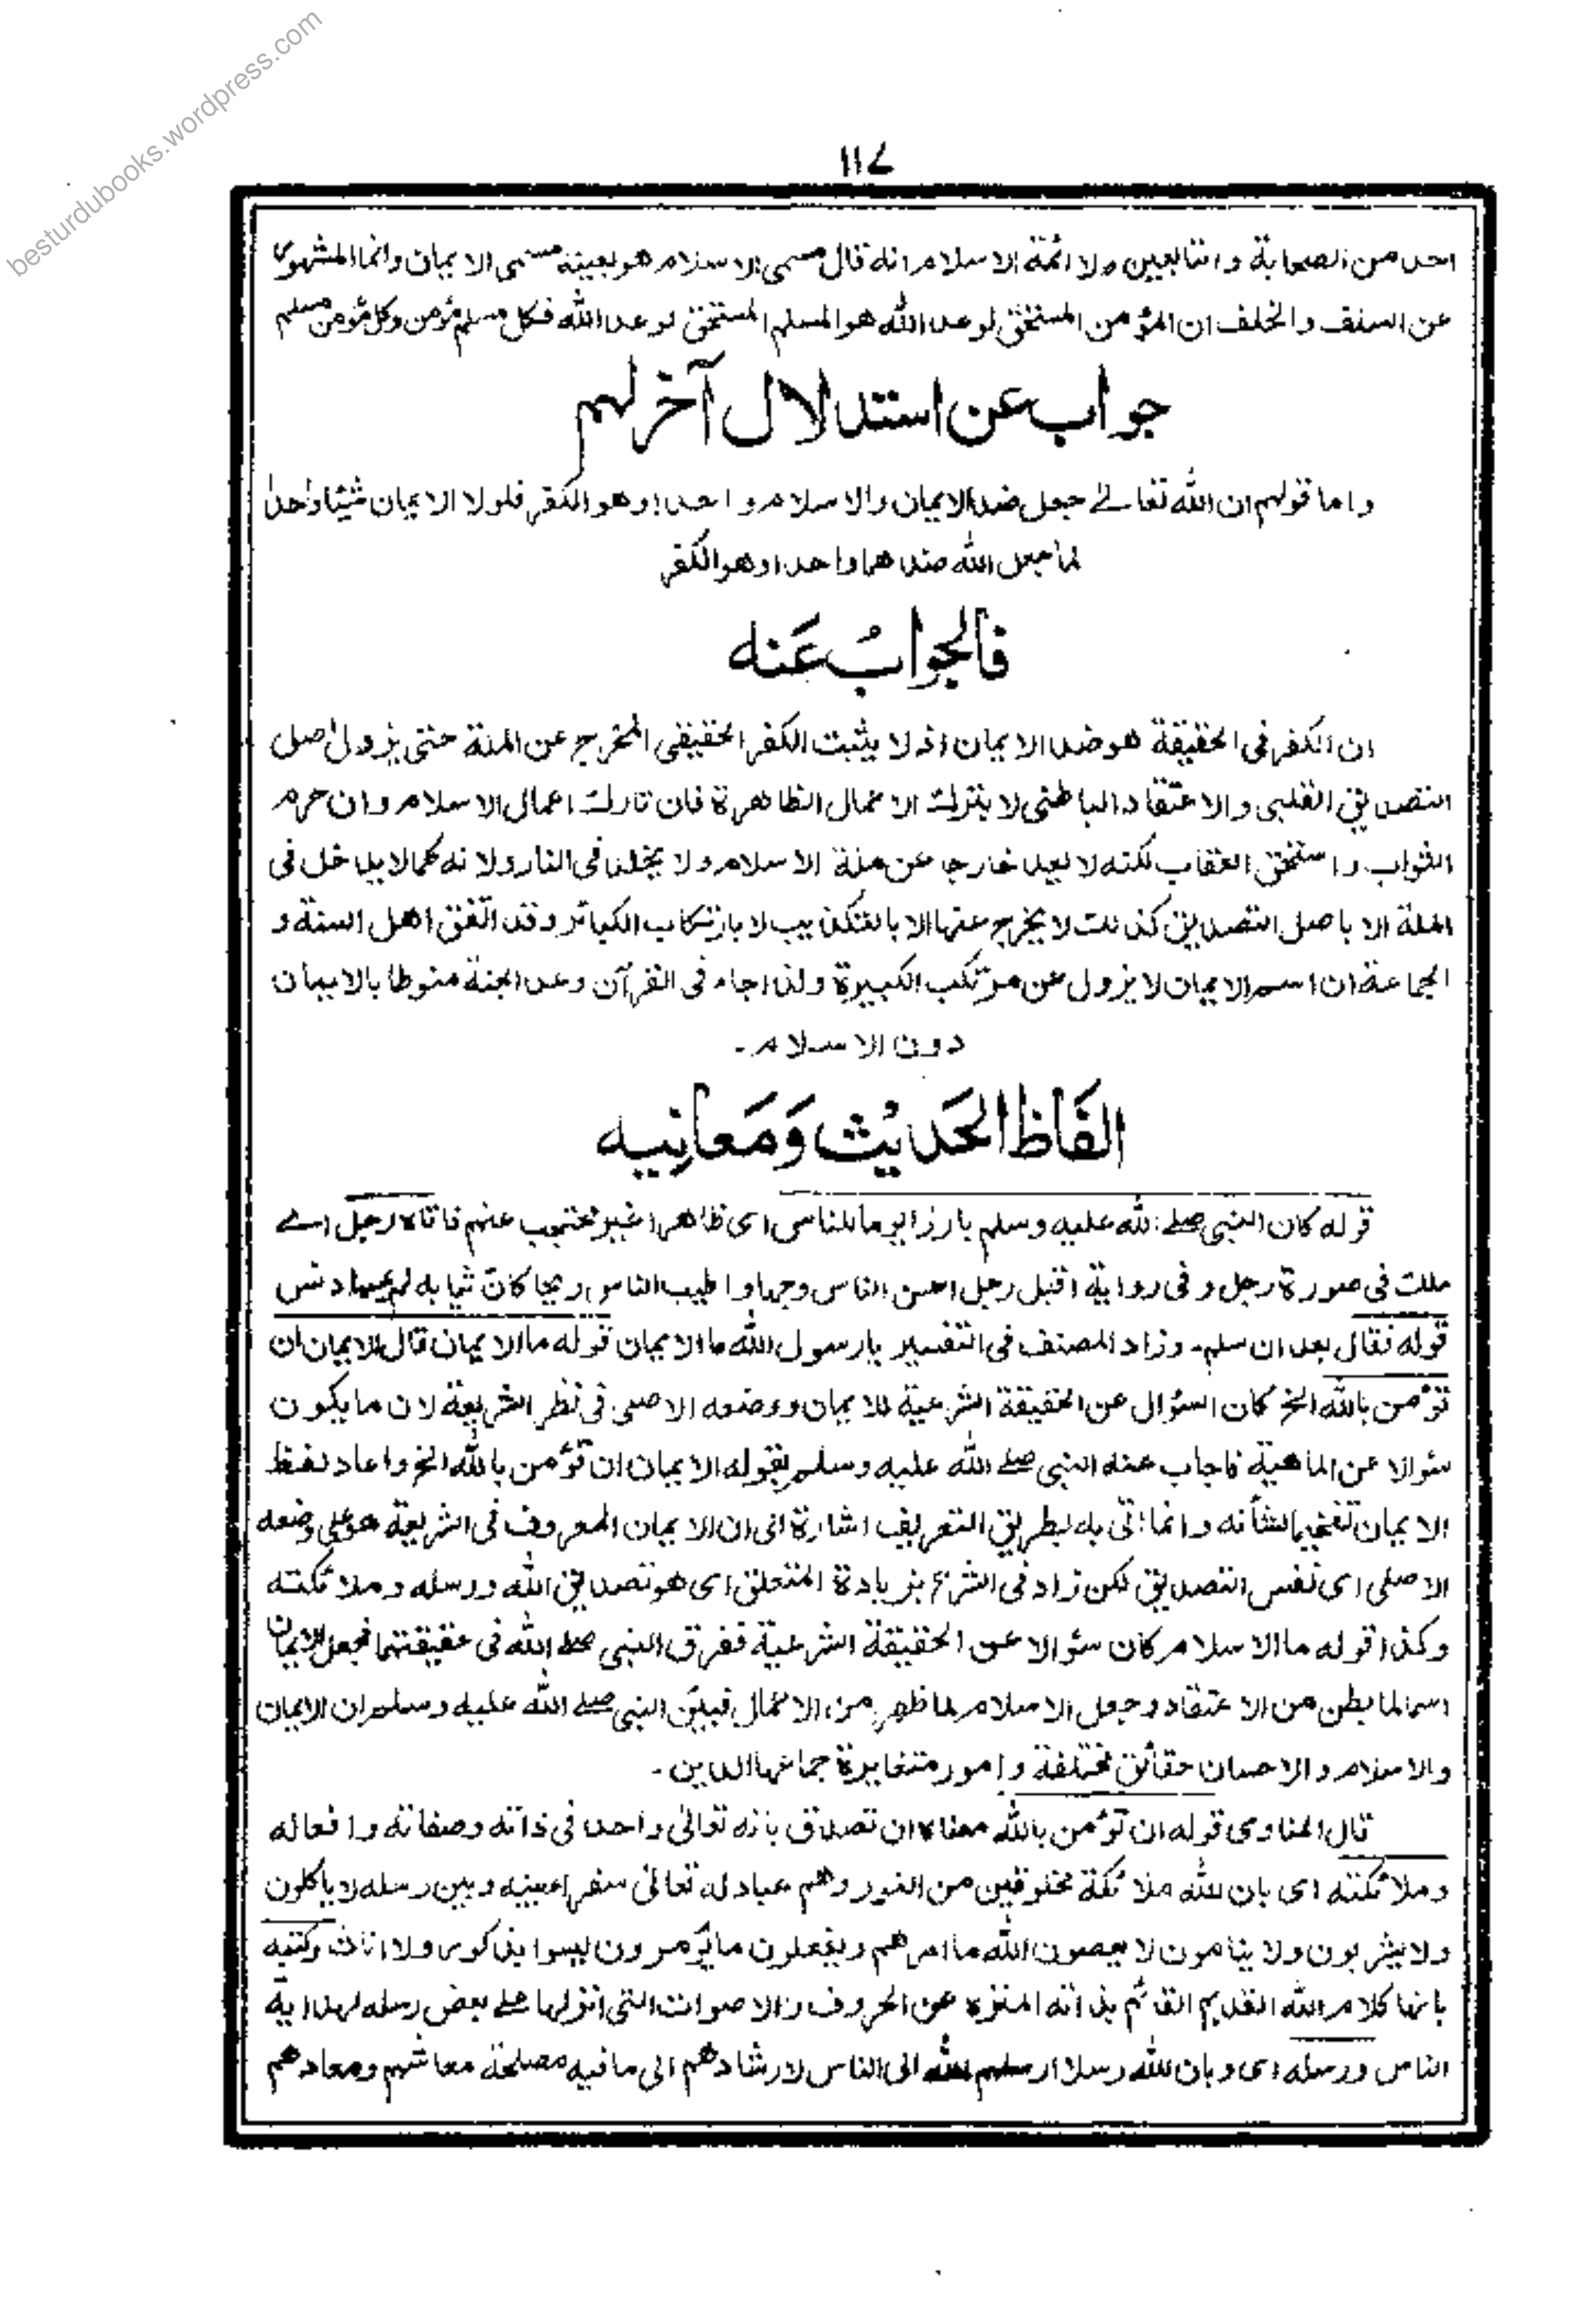 besturdubooks.wordpress.com
۱۱۷
احد من الصحابة والتابعين ولا ائمة الاسلام انه قال مسمى الاسلام هو بعينه مسمى الايمان وانما المشهور
عن السلف والخلف ان المؤمن المستحق لوعد الله هو المسلم المستحق لوعد الله فكل مسلم مؤمن وكل مؤمن مسلم
جواب عن استدلال آخر لهم
واما قولهم ان الله تعالے جعل ضد الايمان والاسلام واحدا وهو الكفر فلولا الايمان شيئا واحدا
لما جعل الله ضدهما واحدا وهو الكفر
فالجوابُ عَنه
ان الكفر فى الحقيقة هو ضد الايمان اذ لا يثبت الكفر الحقيقى المخرج عن الملة حتى يزول اصل
التصديق القلبى والاعتقاد الباطنى لا بترك الاعمال الظاهرة فان تارك اعمال الاسلام وان حرم
الثواب واستحق العقاب لكنه لا يعد خارجا عن ملة الاسلام ولا يخلد فى النار ولانه كما لا يدخل فى
الملة الا باصل التصديق كذلك لا يخرج عنها الا بالتكذيب لا بارتكاب الكبائر وقد اتفق اهل السنة و
الجماعة ان اسم الايمان لا يزول عن مرتكب الكبيرة ولذا جاء فى القرآن وعد الجنة منوطا بالايمان
دون الاسلام۔
الفَاظ الحَديْث وَمَعانِيه
قوله كان النبى صلے الله عليه وسلم بارزا يوما للناس اى ظاهرا غير محتجب عنهم فاتاه رجل اے
ملك فى صورة رجل وفى رواية اقبل رجل احسن الناس وجها واطيب الناس ريحا كان ثيابه لم يمسها دنس
قوله فقال بعد ان سلم۔ وزاد المصنف فى التفسير يا رسول الله ما الايمان قوله ما الايمان قال الايمان ان
تؤمن بالله الخ كان السؤال عن الحقيقة الشرعية للايمان ووضعه الاصلى فى نظر الشريعة لان ما يكون
سئوالا عن الماهية فاجاب عنه النبى صلے الله عليه وسلم بقوله الايمان ان تؤمن بالله الخ واعاد لفظ
الايمان تفخيما لشأنه وانما اتى به بطريق التعريف اشارة الى ان الايمان المعروف فى الشريعة هو على وضعه
الاصلى اى نفس التصديق لكن زاد فى الشرع بزيادة المتعلق اى هو تصديق الله ورسله وملائكته
وكذا قوله ما الاسلام كان سئوالا عن الحقيقة الشرعية ففرق النبى صلے الله فى حقيقتهما فجعل الايمان
اسما لما بطن من الاعتقاد وجعل الاسلام لما ظهر من الاعمال فبيّن النبى صلے الله عليه وسلم ان الايمان
والاسلام والاحسان حقائق مختلفة وامور متغايرة جماعها الدين۔
قال المناوى قوله ان تؤمن بالله معناه ان تصدق بانه تعالى واحد فى ذاته وصفاته وافعاله
وملائكته اى بان لله ملائكة مخلوقين من النور وهم عباد له تعالى سفراء بينه وبين رسله لا ياكلون
ولا يشربون ولا ينامون لا يعصون الله ما امرهم ويفعلون ما يؤمرون ليسوا بذكور ولا اناث وكتبه
بانها كلام الله القديم القائم بذاته المنزه عن الحروف والاصوات التى انزلها على بعض رسله لهداية
الناس ورسله اى وبان لله رسلا ارسلهم الله الى الناس لارشادهم الى ما فيه مصلحة معاشهم ومعادهم